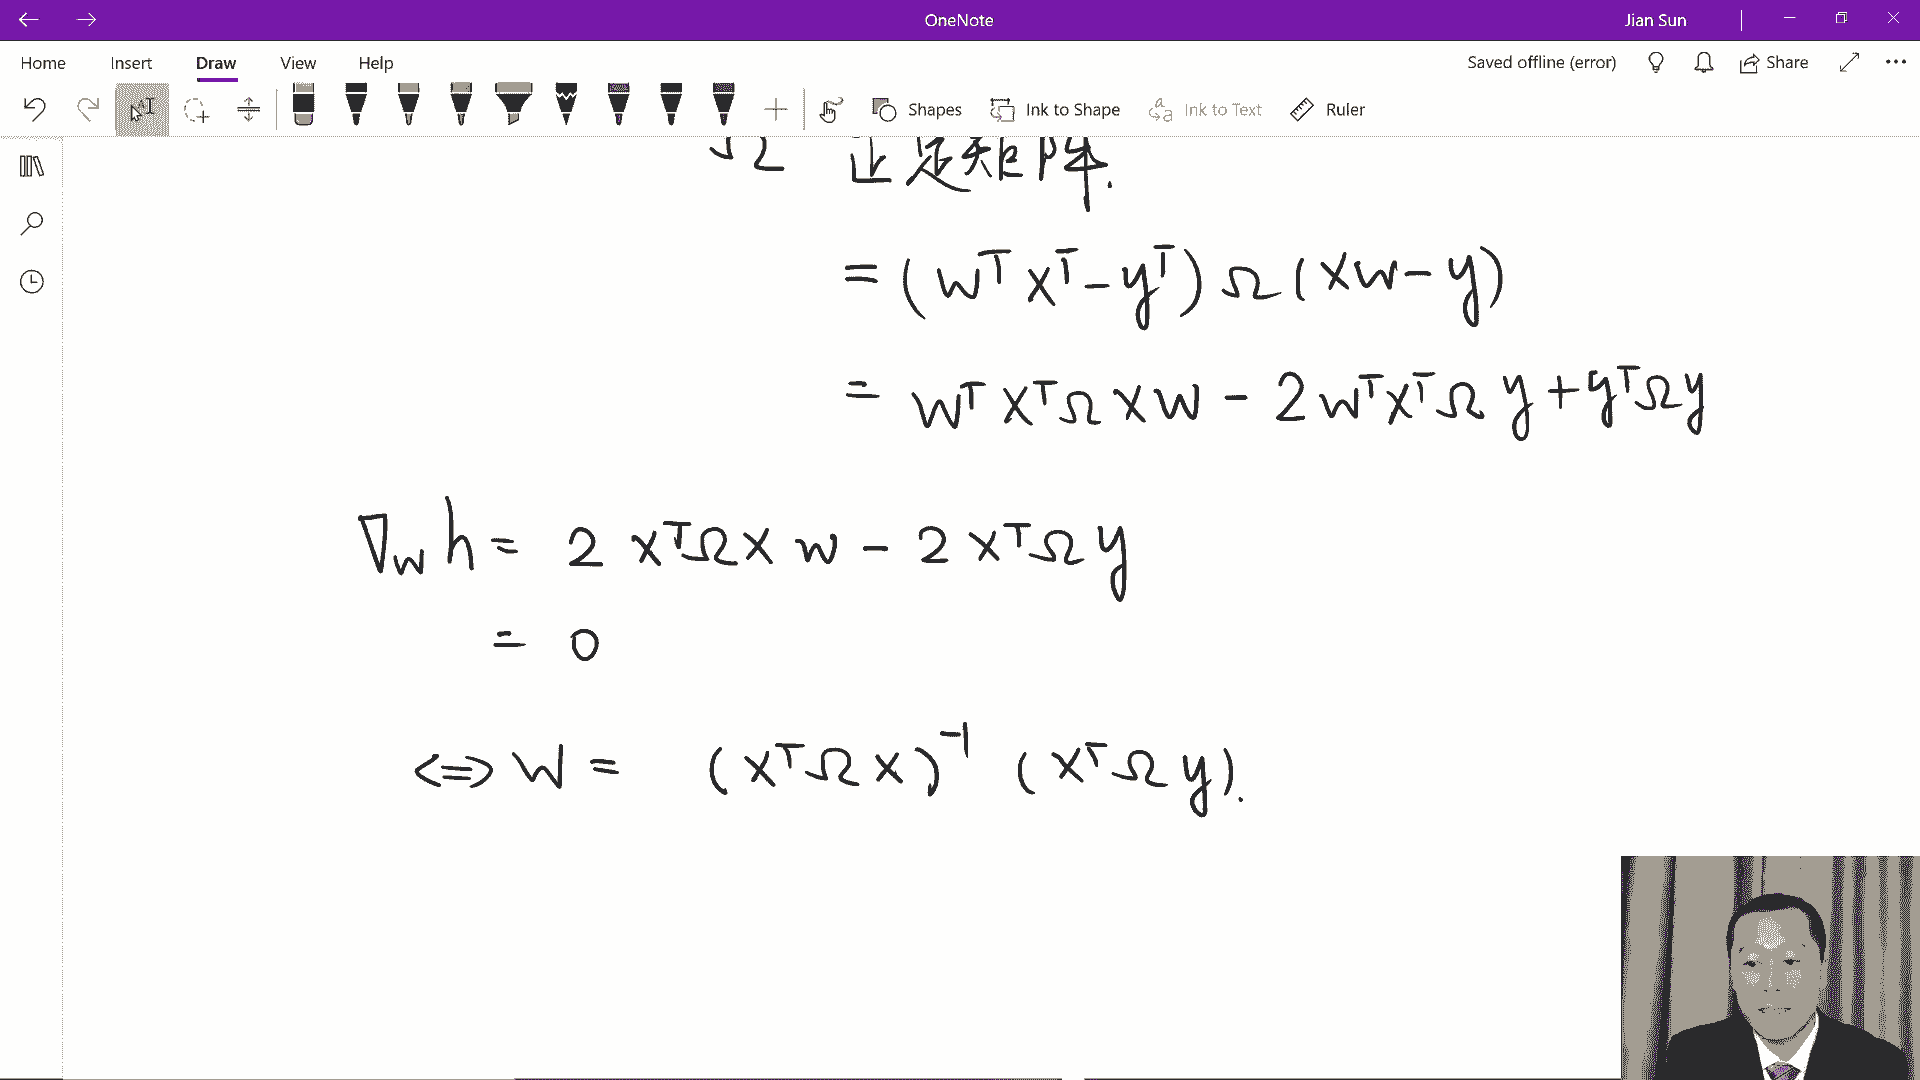 OneNote
Jian Sun
Home Insert Draw View Help
Saved offline (error)
Share
Shapes
Ink to Shape
Ink to Text
Ruler
Ω 正定矩阵.
= (wᵀxᵀ-yᵀ)Ω(xw-y)
= wᵀxᵀΩxw - 2wᵀxᵀΩy + yᵀΩy
∇w h = 2 xᵀΩx w - 2 xᵀΩy
= 0
⟺ w = (xᵀΩx)⁻¹ (xᵀΩy).